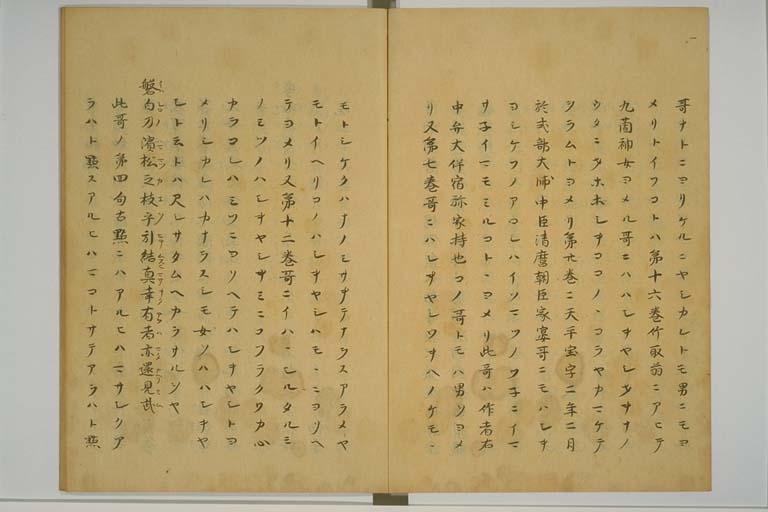 哥ナトニヨリケルニヤシカレトモ男ニモヨ
メリトイフコトハ第十六巻竹取翁ニアヒテ
九箇神女ヨメル哥ニハハシキヤシオキナノ
ウタニオホホシキココノヽコラヤカマケテ
ヲラムトヨメリ第廿巻ニ天平宝字二年二月
於式部大輔中臣清麿朝臣家宴哥ニモハシキ
ヨシケフノアロシハイソマツノツネニイマ
サネイマモミルコトヽヨメリ此哥ハ作者右
中弁大伴宿祢家持也コノ哥トモハ男ソヨメ
リ又第七巻哥ニハシキヤシワキヘノケモヽ
モトシケクハナノミサキテナラスアラメヤ
モトイヘリコノハシキヤシハモヽニヨソヘ
テヨメリ又第十二巻哥ニイハヽシルタルミ
ノミツノハシキヤシキミニコフラクワカ心
カラコレハミツニヨソヘテハシキヤシトヨ
メリシカレハカナラスシモ女ソハハシキヤ
シト云トハ尺シサタムヘカラサルソヤ
磐白乃濱松之枝乎引結真幸有者亦還見武
此哥ノ第四句古點ニハアルヒハマサシクア
ラハト點スアルヒハマコトサチアラハト點